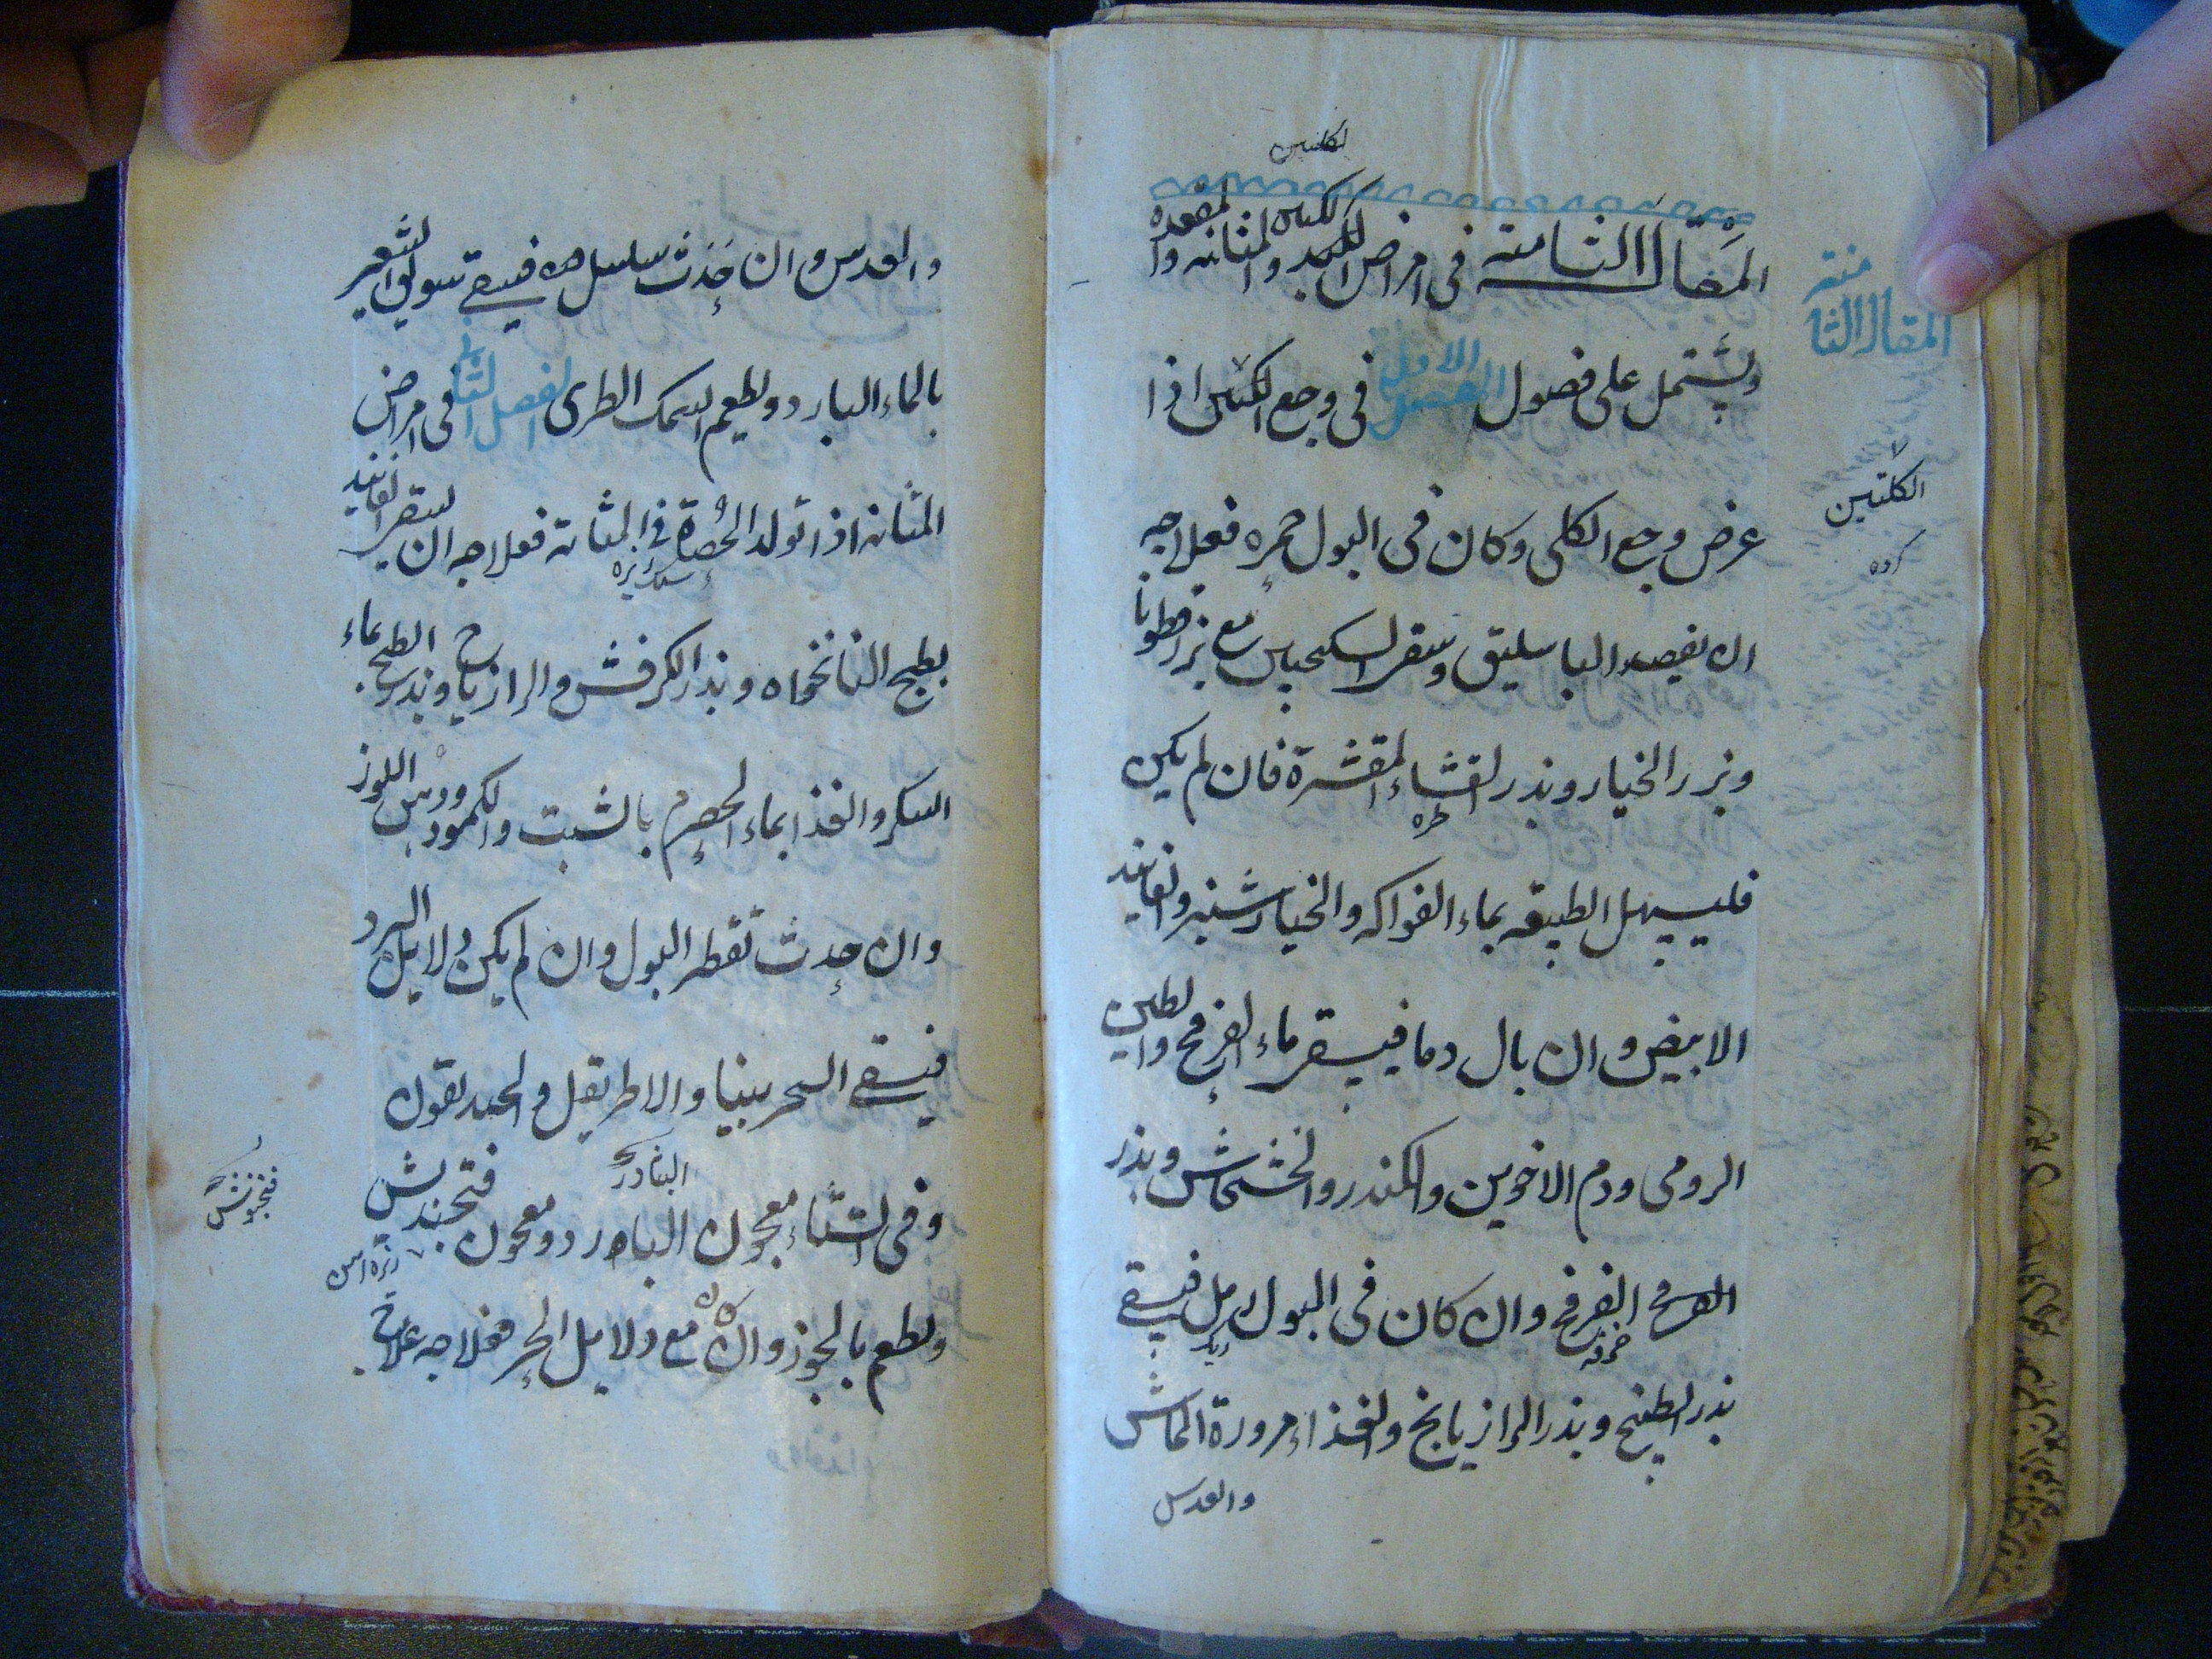 المقالة الثامنة في امراض الكبد الكليتين والمثانه والمقعده
ويشتمل على فصول الفصل الاول في وجع الكليتين اذا
عرض وجع الكلى وكان في البول حمره فعلاجه
ان يفصد الباسليق وسقى السكنجبين مع بزرقطونا
وبزر الخيار وبذر القشاء المقشرة فان لم يكن
فليسهل الطبيعه بماء الفواكه والخيارشنبر والفانيد
الابيض وان بال دما فيسقى ماء الفرفخ والطين
الرومى ودم الاخوين والكندر والخشخاش وبذر
الفرفخ وان كان في البول رمل فيسقى
بذر البطيخ وبذر الرازيانج والغذاء مزورة الماش
والعدس
المقالة الثامنة
الكليتين
كرده
والعدس وان حدث سلسل فيسقى سويق الشعير
بالماء البارد ويطعم السمك الطرى الفصل الثانى في امراض
المثانه اذا تولد الحصاة في المثانة فعلاجه ان يسقى الفانيد
بطبخ النانخواه وبذر الكرفش والرازيانج وبذر البطيخ بماء
السكر والغذا بماء الحصرم بالشبت والكمون ودهن اللوز
وان حدث تقطر البول وان لم يكن دلايل البرد
فيسقى السجرينيا والاطريفل
وفى الشتاء معجون البلادر ومعجون فتجنوش
ويطعم بالجوز وان كان مع دلايل الحر فعلاجه علاج
فنجنوش